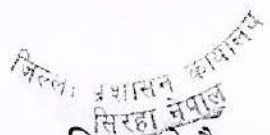 जिल्ला प्रशासन कार्यालय
सिरहा नेपाल